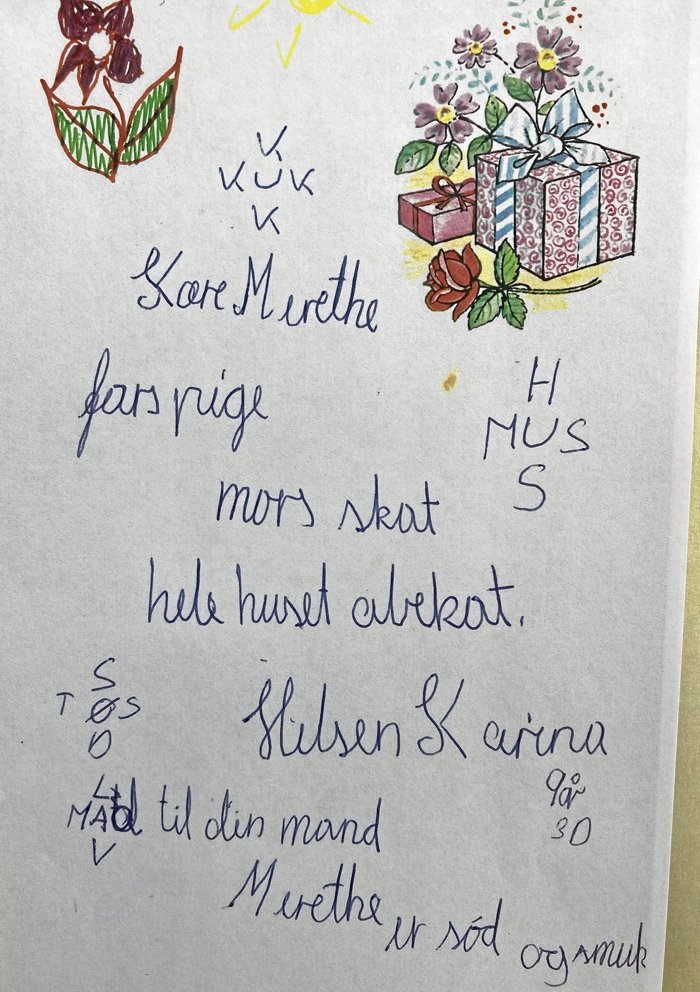 K
KUK
K
Kære Merethe
fars pige
H
MUS
S
mors skat
hele huset abekat.
S
TØS
D
Hilsen Karina
9 år
3D
L
MAd til din mand
V
Merethe er sød og smuk